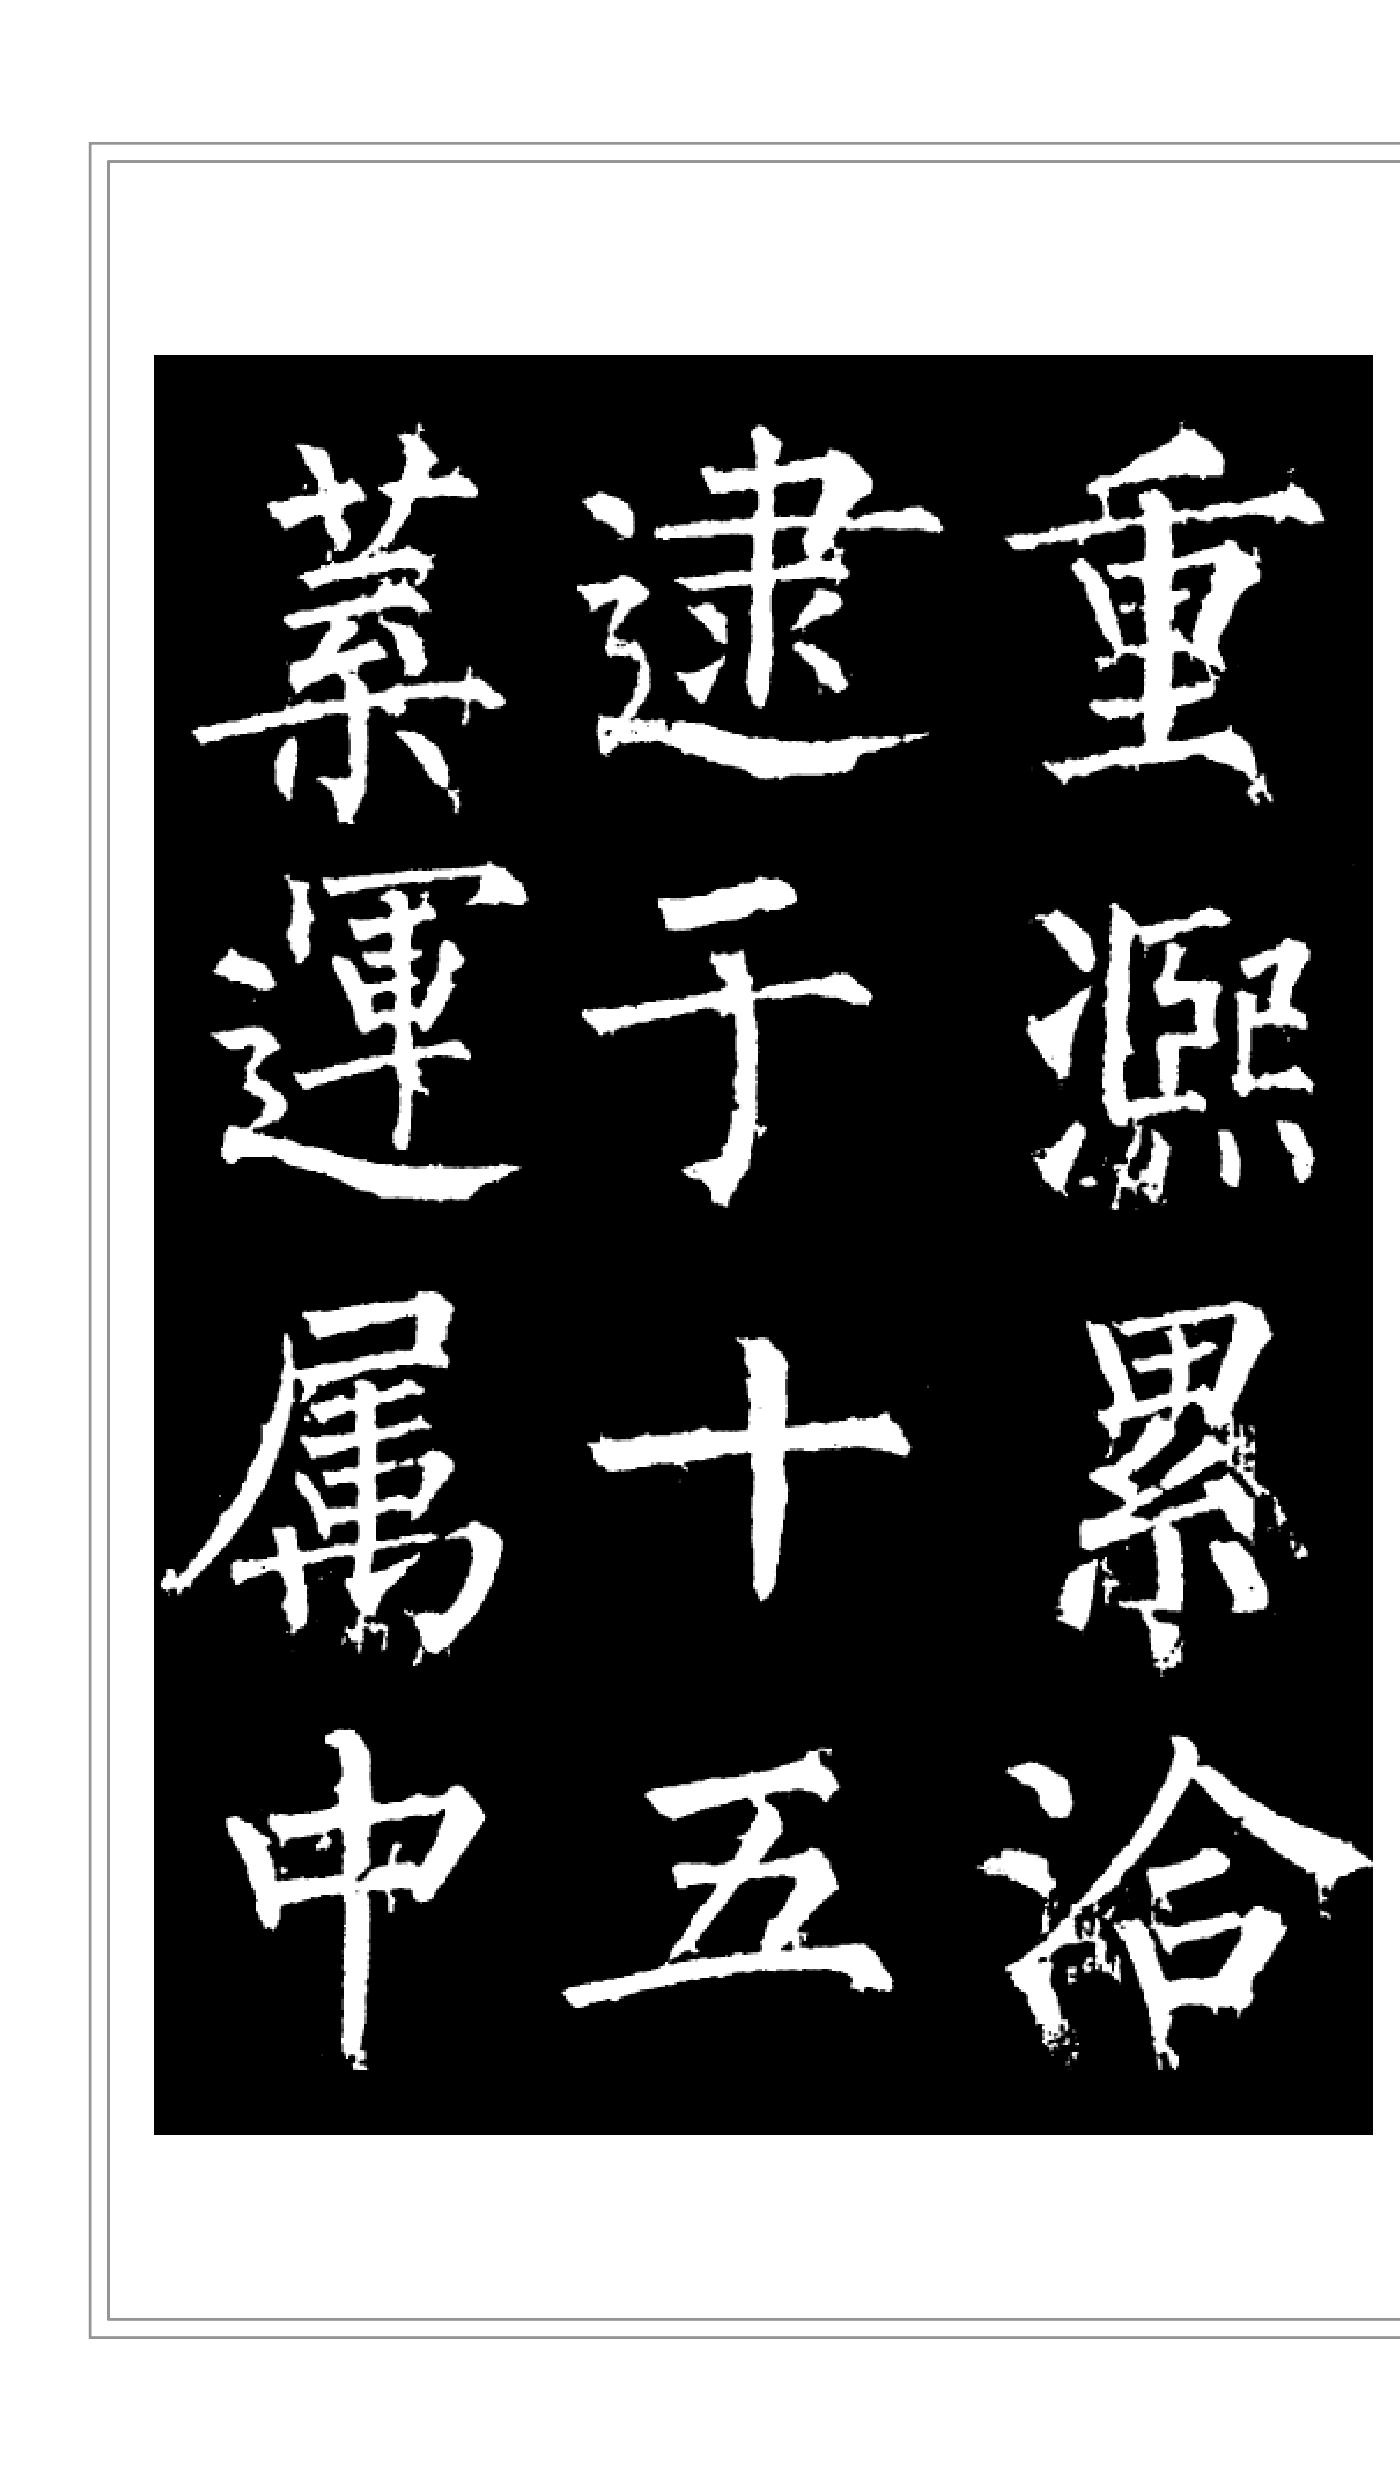 重凞累洽
逮于十五
葉運属中